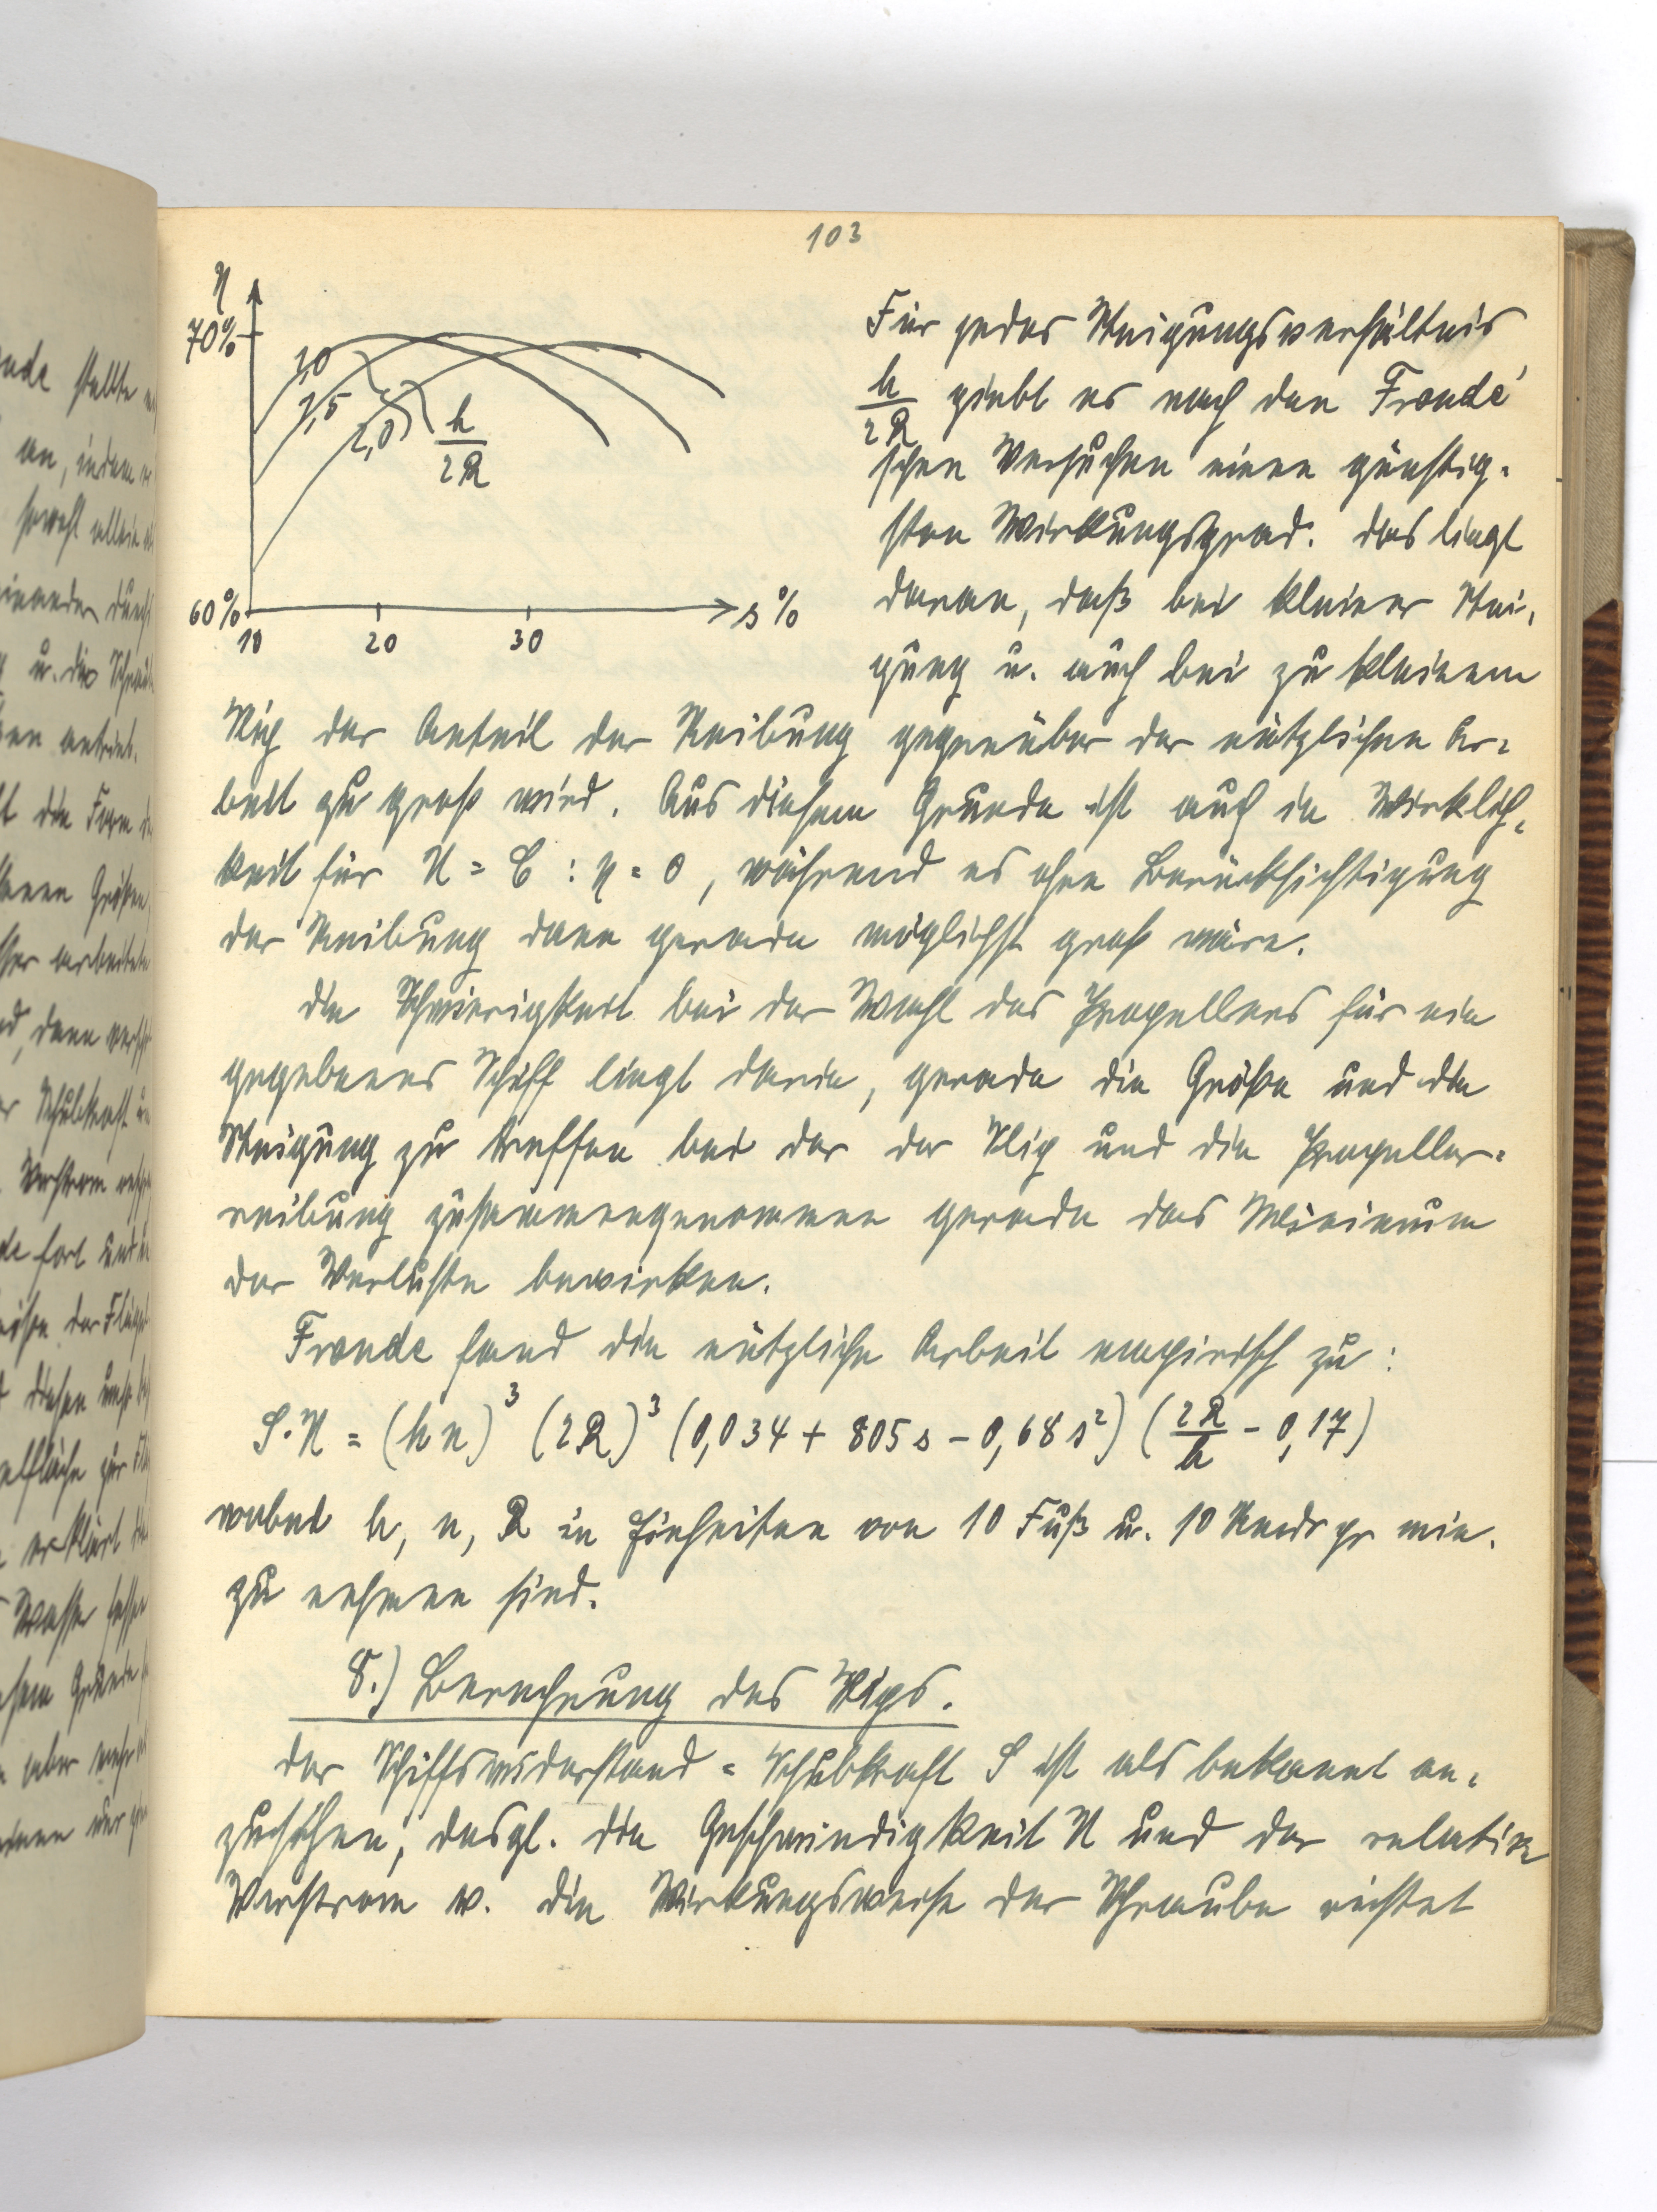 103
η
70%
1,0
1,5
2,0
h/2R
60%
10 20 30 s%
Für jedes Steigungsverhältnis
h/2R giebt es nach den Froude'
schen Versuchen einen günstig-
sten Wirkungsgrad. das liegt
daran, daß bei kleiner Stei-
gung u. auch bei zu kleinem
Slip der Anteil der Reibung gegenüber der nützlichen Ar-
beit zu groß wird. Aus diesem Grunde ist auch in Wirklich-
keit für U = C : η = 0, während es ohne Berücksichtigung
der Reibung dann gerade möglichst groß wäre.
die Schwierigkeit bei der Wahl des Propellers für ein
gegebenes Schiff liegt darin, gerade die Größe und die
Steigung zu treffen bei der der Slip und die Propeller-
reibung zusammengenommen gerade das Minimum
der Verluste bewirken.
Froude fand die nützliche Arbeit empirisch zu:
S.U = (hn)³ (2R)³ (0,034 + 805 s - 0,68 s²) (2R/h - 0,17)
wobei h, n, R in Einheiten von 10 Fuß u. 10 Umdr pr min.
zu nehmen sind.
8.) Berechnung des Slips.
der Schiffswiderstand = Schubkraft S ist als bekannt an-
zusehen, desgl. die Geschwindigkeit U und der relative
Vorstrom w. die Wirkungsweise der Schraube richtet